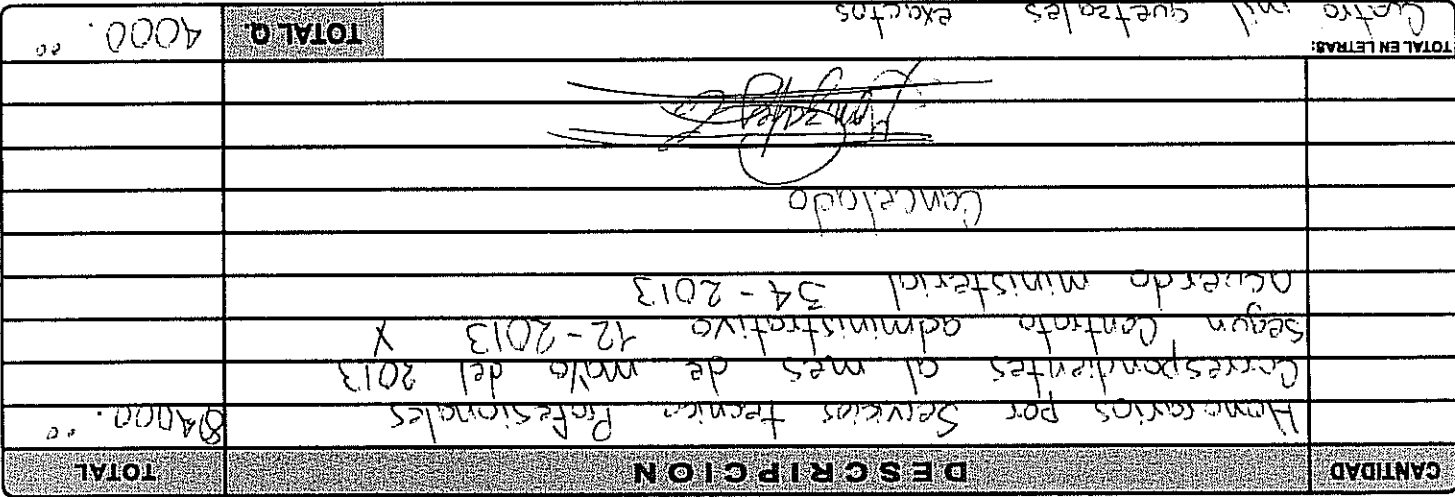 CANTIDAD DESCRIPCION TOTAL
Honorarios por Servicios tecnico Profesionales 4000.00
Correspondientes al mes de mayo del 2013
segun Contrato administrativo 12-2013 y
acuerdo ministerial 34-2013
Cancelado
TOTAL EN LETRAS:
Cuatro mil quetzales exactos TOTAL Q 4000.00